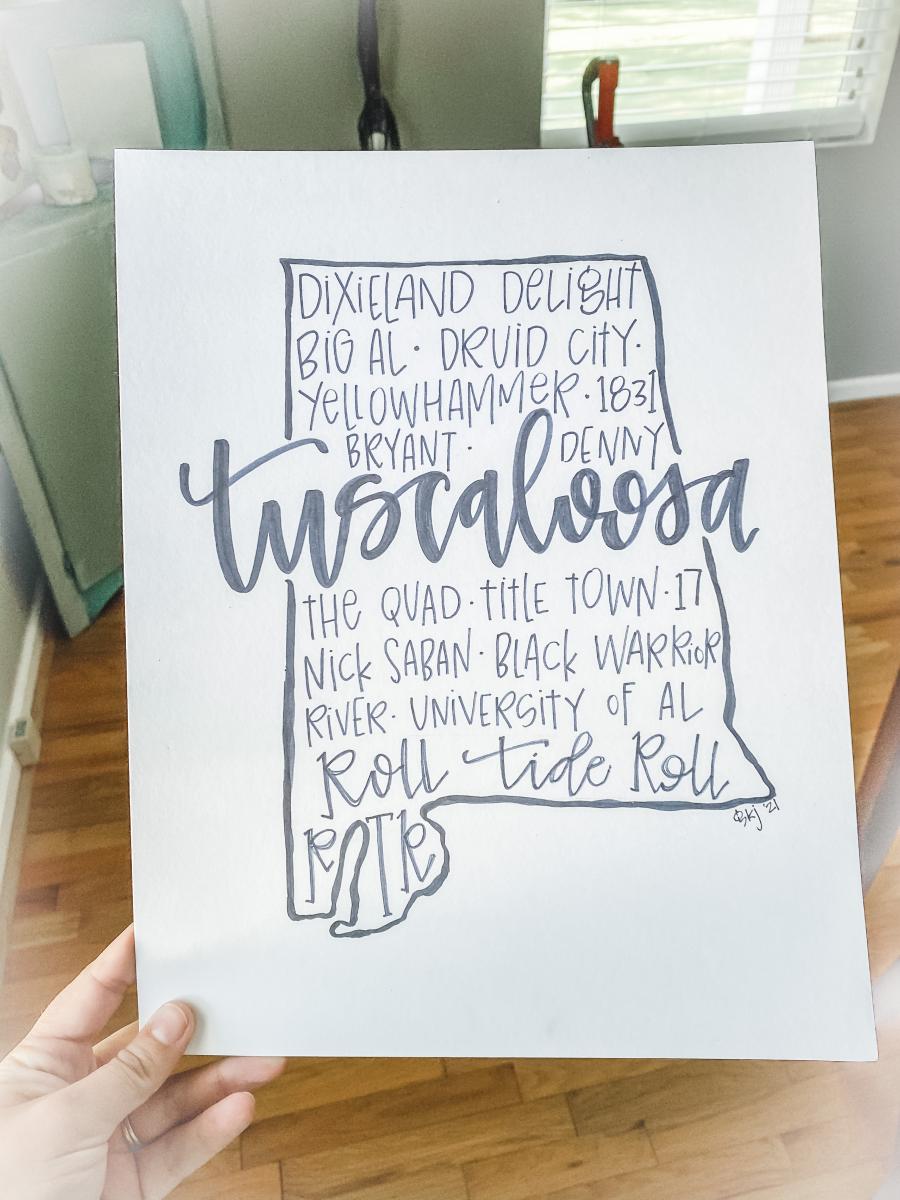 DiXiELAND DELiGHT
BiG AL · DRUiD CiTY ·
YELLOWHAMMER · 1831
BRYANT · DENNY
tuscaloosa
THE QUAD · TiTLE TOWN · 17
NiCK SABAN · BLACK WARRiOR
RiVER · UNiVERSiTY OF AL
Roll tide Roll
RTR
BKJ '21